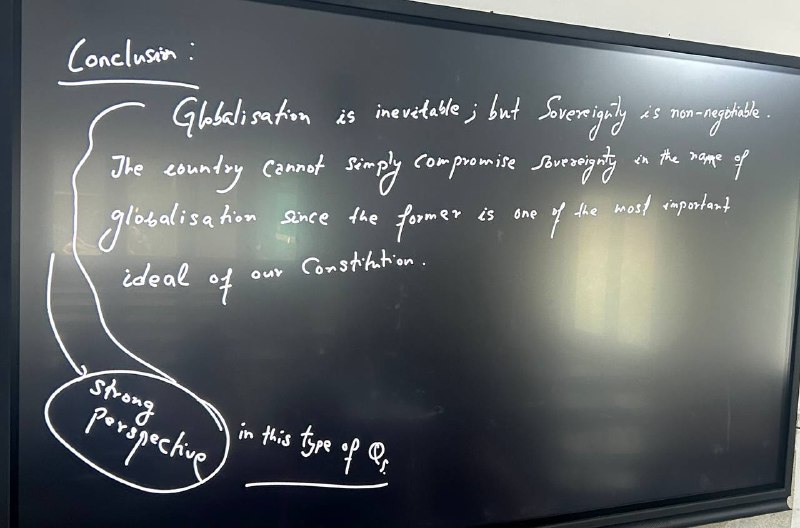 Conclusion :
Globalisation is inevitable; but Sovereignty is non-negotiable.
The country cannot simply compromise sovereignty in the name of
globalisation since the former is one of the most important
ideal of our Constitution.
strong
perspective
in this type of Qs.